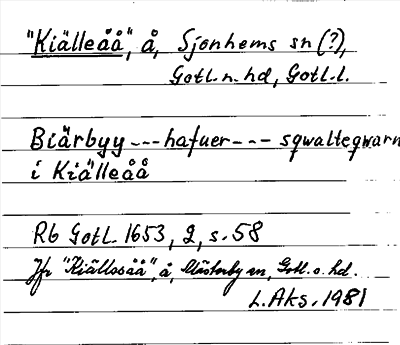 "Kiälleåå", å, Sjonhems sn (?),
Gotl. n. hd, Gotl. l.
Biärbyy --- hafuer --- sqwalteqwarn
i Kiälleåå
Rb Gotl. 1653, 2, s. 58
Jfr "Kiällssåå", å, Västerby sn, Gotl. s. hd.
L. Aks. 1981